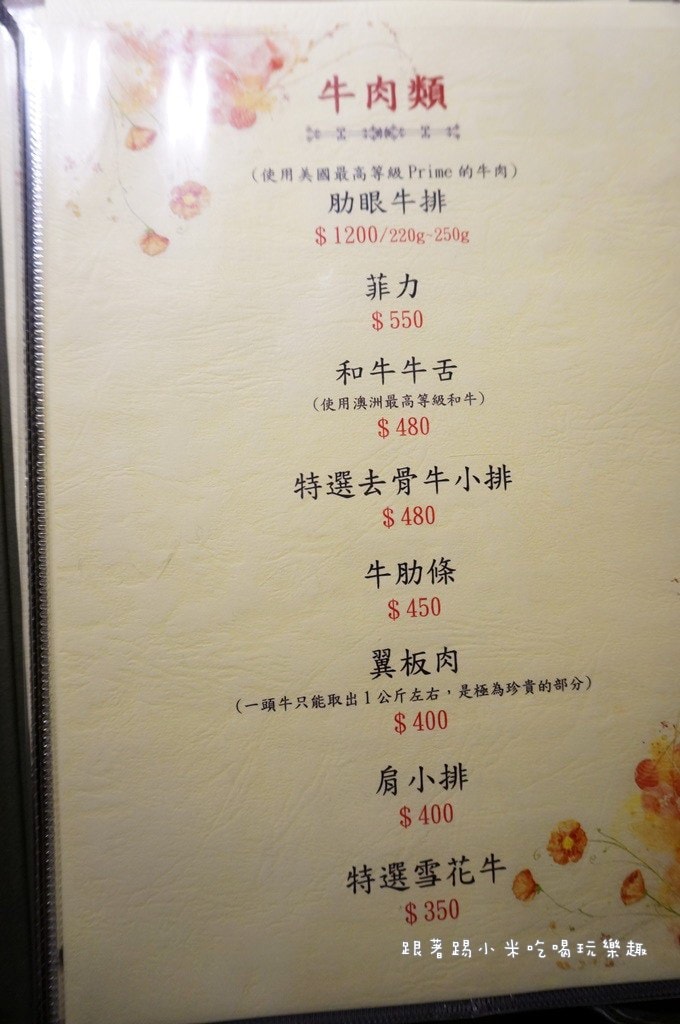 牛肉類
(使用美國最高等級Prime的牛肉)
肋眼牛排
$1200/220g~250g
菲力
$550
和牛牛舌
(使用澳洲最高等級和牛)
$480
特選去骨牛小排
$480
牛肋條
$450
翼板肉
(一頭牛只能取出1公斤左右，是極為珍貴的部分)
$400
肩小排
$400
特選雪花牛
$350
跟著踢小米吃喝玩樂趣